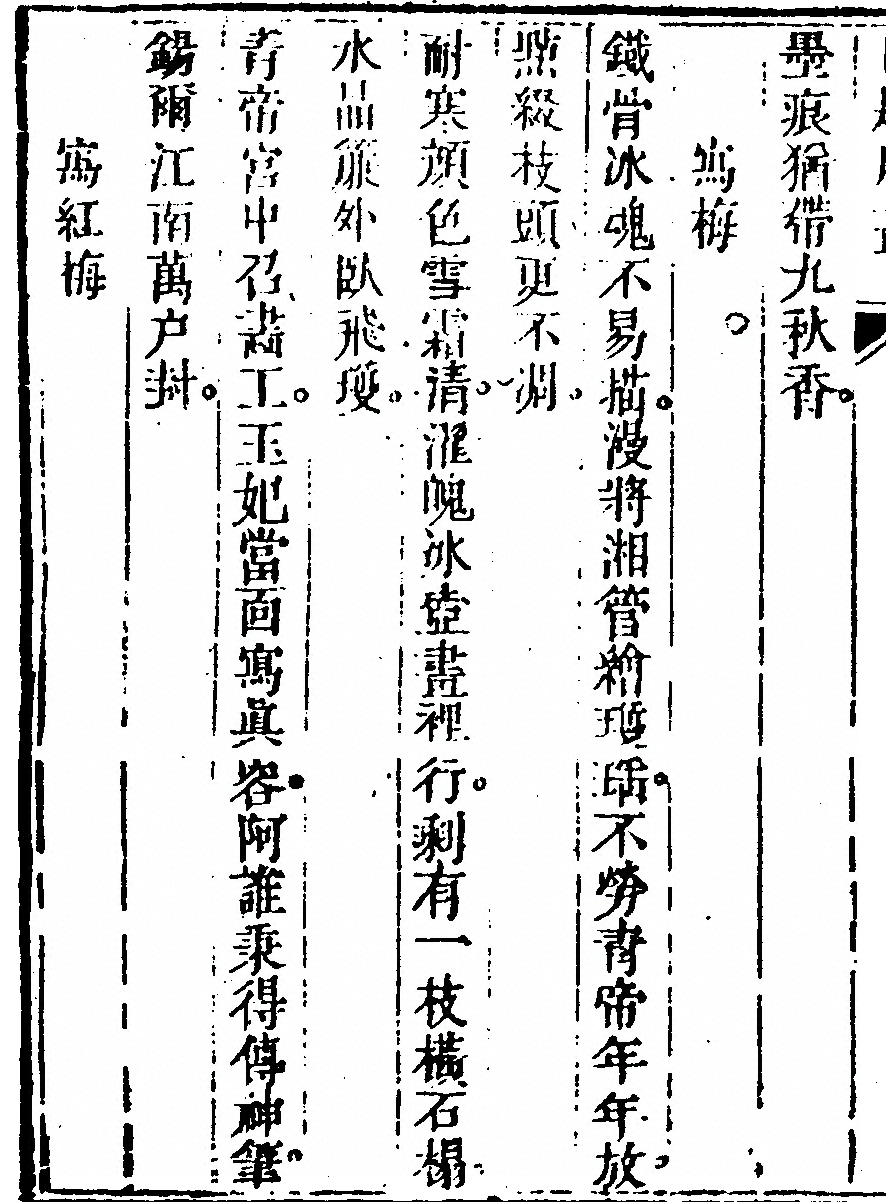 墨痕猶帶九秋香
寫梅
鐵骨冰魂不易描漫將湘管繪瓊瑤不勞青帝年年放
點綴枝頭更不凋
耐寒顏色雪霜清濯魄冰壺畫裡行剩有一枝橫石榻
水晶簾外臥飛瓊
青帝宮中召畫工玉妃當面寫眞容阿誰秉得傳神筆
錫爾江南萬户封
寫紅梅